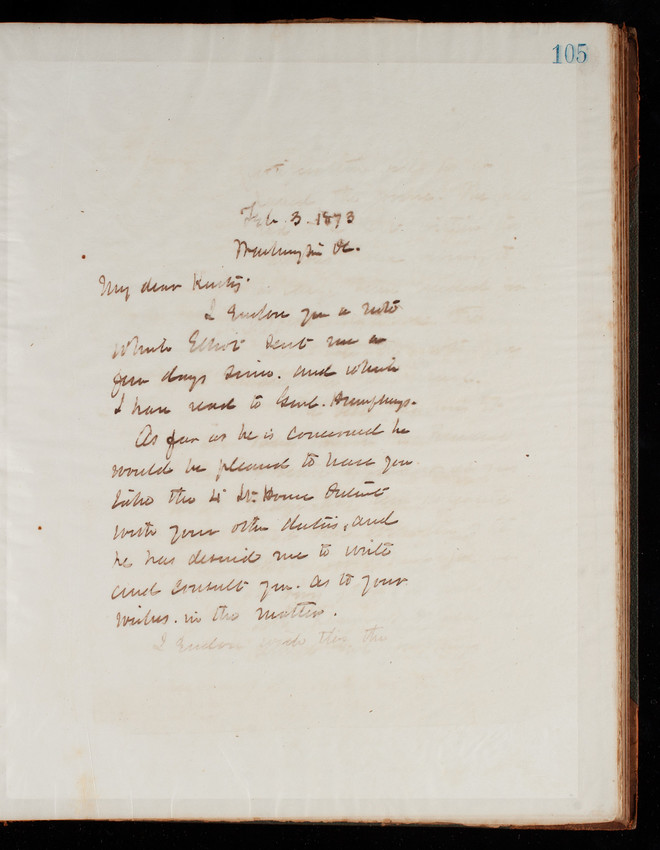 105
Feb. 3. 1873
Washington DC.
My dear
I Enclose you a note
which Elliot Sent me a
few days since. and which
I have read to Genl. Humphreys.
As far as he is concerned he
would be pleased to have you
take the Lt. House District
with your other duties, and
he has desired me to write
and consult you. as to your
wishes. in the matter.
I Enclose the